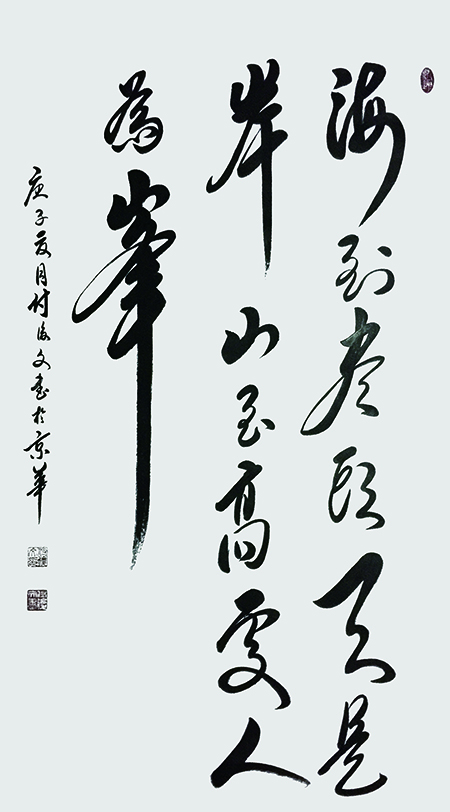 海到尽头天是
岸山至高处人
为峰
庚子夏月付海文书于京华